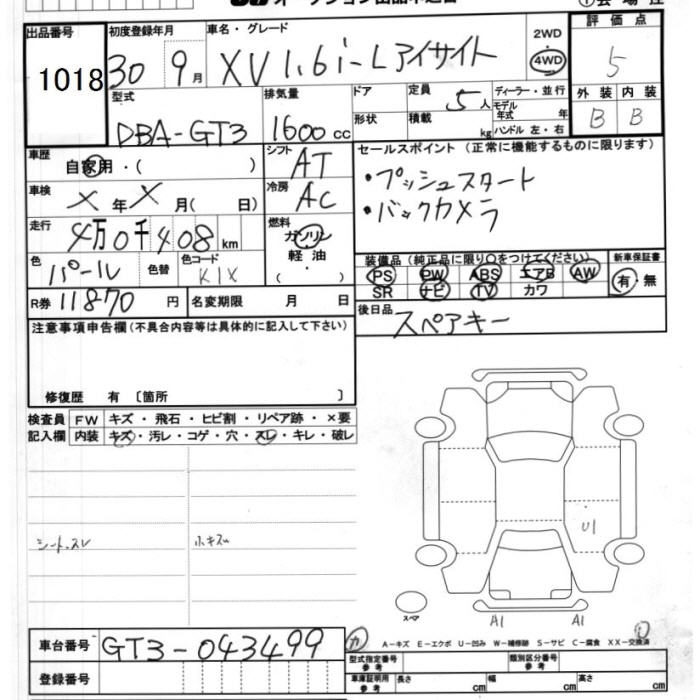 出品番号 初度登録年月 車名・グレード 2WD 評価点
1018 30年 9月 XV 1.6i-L アイサイト 4WD 5
型式 排気量 ドア 定員 ディーラー・並行 外装 内装
DBA-GT3 1600cc 5人 モデル年式 年 B B
形状 積載 kg ハンドル 左・右
車歴 自家用・( ) シフト AT セールスポイント (正常に機能するものに限ります)
車検 X年X月( 日) 冷房 AC ・プッシュスタート
・バックカメラ
走行 4万0千408km 燃料 ガソリン
軽油
( )
色 パール 色替 色コード K1X
装備品 (純正品に限り○をつけてください) 新車保証書
PS PW ABS エアB AW 有・無
SR ナビ TV カワ
R券 11870円 名変期限 月 日 後日品
スペアキー
注意事項申告欄(不具合内容等は具体的に記入して下さい)
修復歴 有 〔箇所 〕
検査員 FW キズ・飛石・ヒビ割・リペア跡・×要
記入欄 内装 キズ・汚レ・コゲ・穴・スレ・キレ・破レ
シートスレ 小キズ
U1
スペア A1 A1
車台番号 GT3-043499
A-キズ E-エクボ U-凹み W-補修跡 S-サビ C-腐食 XX-交換済
登録番号 型式指定番号 参考 類別区分番号 参考
車庫証明用 参考 長さ cm 幅 cm 高さ cm